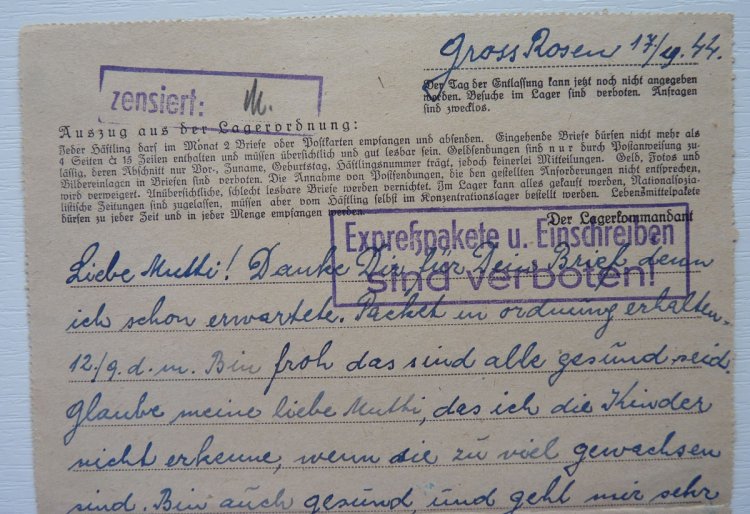 Gross Rosen 17/9.44.
Der Tag der Entlassung kann jetzt noch nicht angegeben
werden. Besuche im Lager sind verboten. Anfragen
sind zwecklos.
zensiert: M.
Auszug aus der Lagerordnung:
Jeder Häftling darf im Monat 2 Briefe oder Postkarten empfangen und absenden. Eingehende Briefe dürfen nicht mehr als
4 Seiten à 15 Zeilen enthalten und müssen übersichtlich und gut lesbar sein. Geldsendungen sind nur durch Postanweisung zu-
lässig, deren Abschnitt nur Vor-, Zuname, Geburtstag, Häftlingsnummer trägt, jedoch keinerlei Mitteilungen. Geld, Fotos und
Bildereinlagen in Briefen sind verboten. Die Annahme von Postsendungen, die den gestellten Anforderungen nicht entsprechen,
wird verweigert. Unübersichtliche, schlecht lesbare Briefe werden vernichtet. Im Lager kann alles gekauft werden, Nationalsozia-
listische Zeitungen sind zugelassen, müssen aber vom Häftling selbst im Konzentrationslager bestellt werden. Lebensmittelpakete
dürfen zu jeder Zeit und in jeder Menge empfangen werden.
Der Lagerkommandant
Expreßpakete u. Einschreiben
sind verboten!
Liebe Mutti! Danke Dir für Dein Brief denn
ich schon erwartete. Packet in ordnung erhalten
12/9. d. m. Bin froh das sind alle gesund seid.
Glaube meine liebe Mutti, das ich die Kinder
nicht erkenne, wenn sie zu viel gewachsen
sind. Bin auch gesund, und geht mir sehr